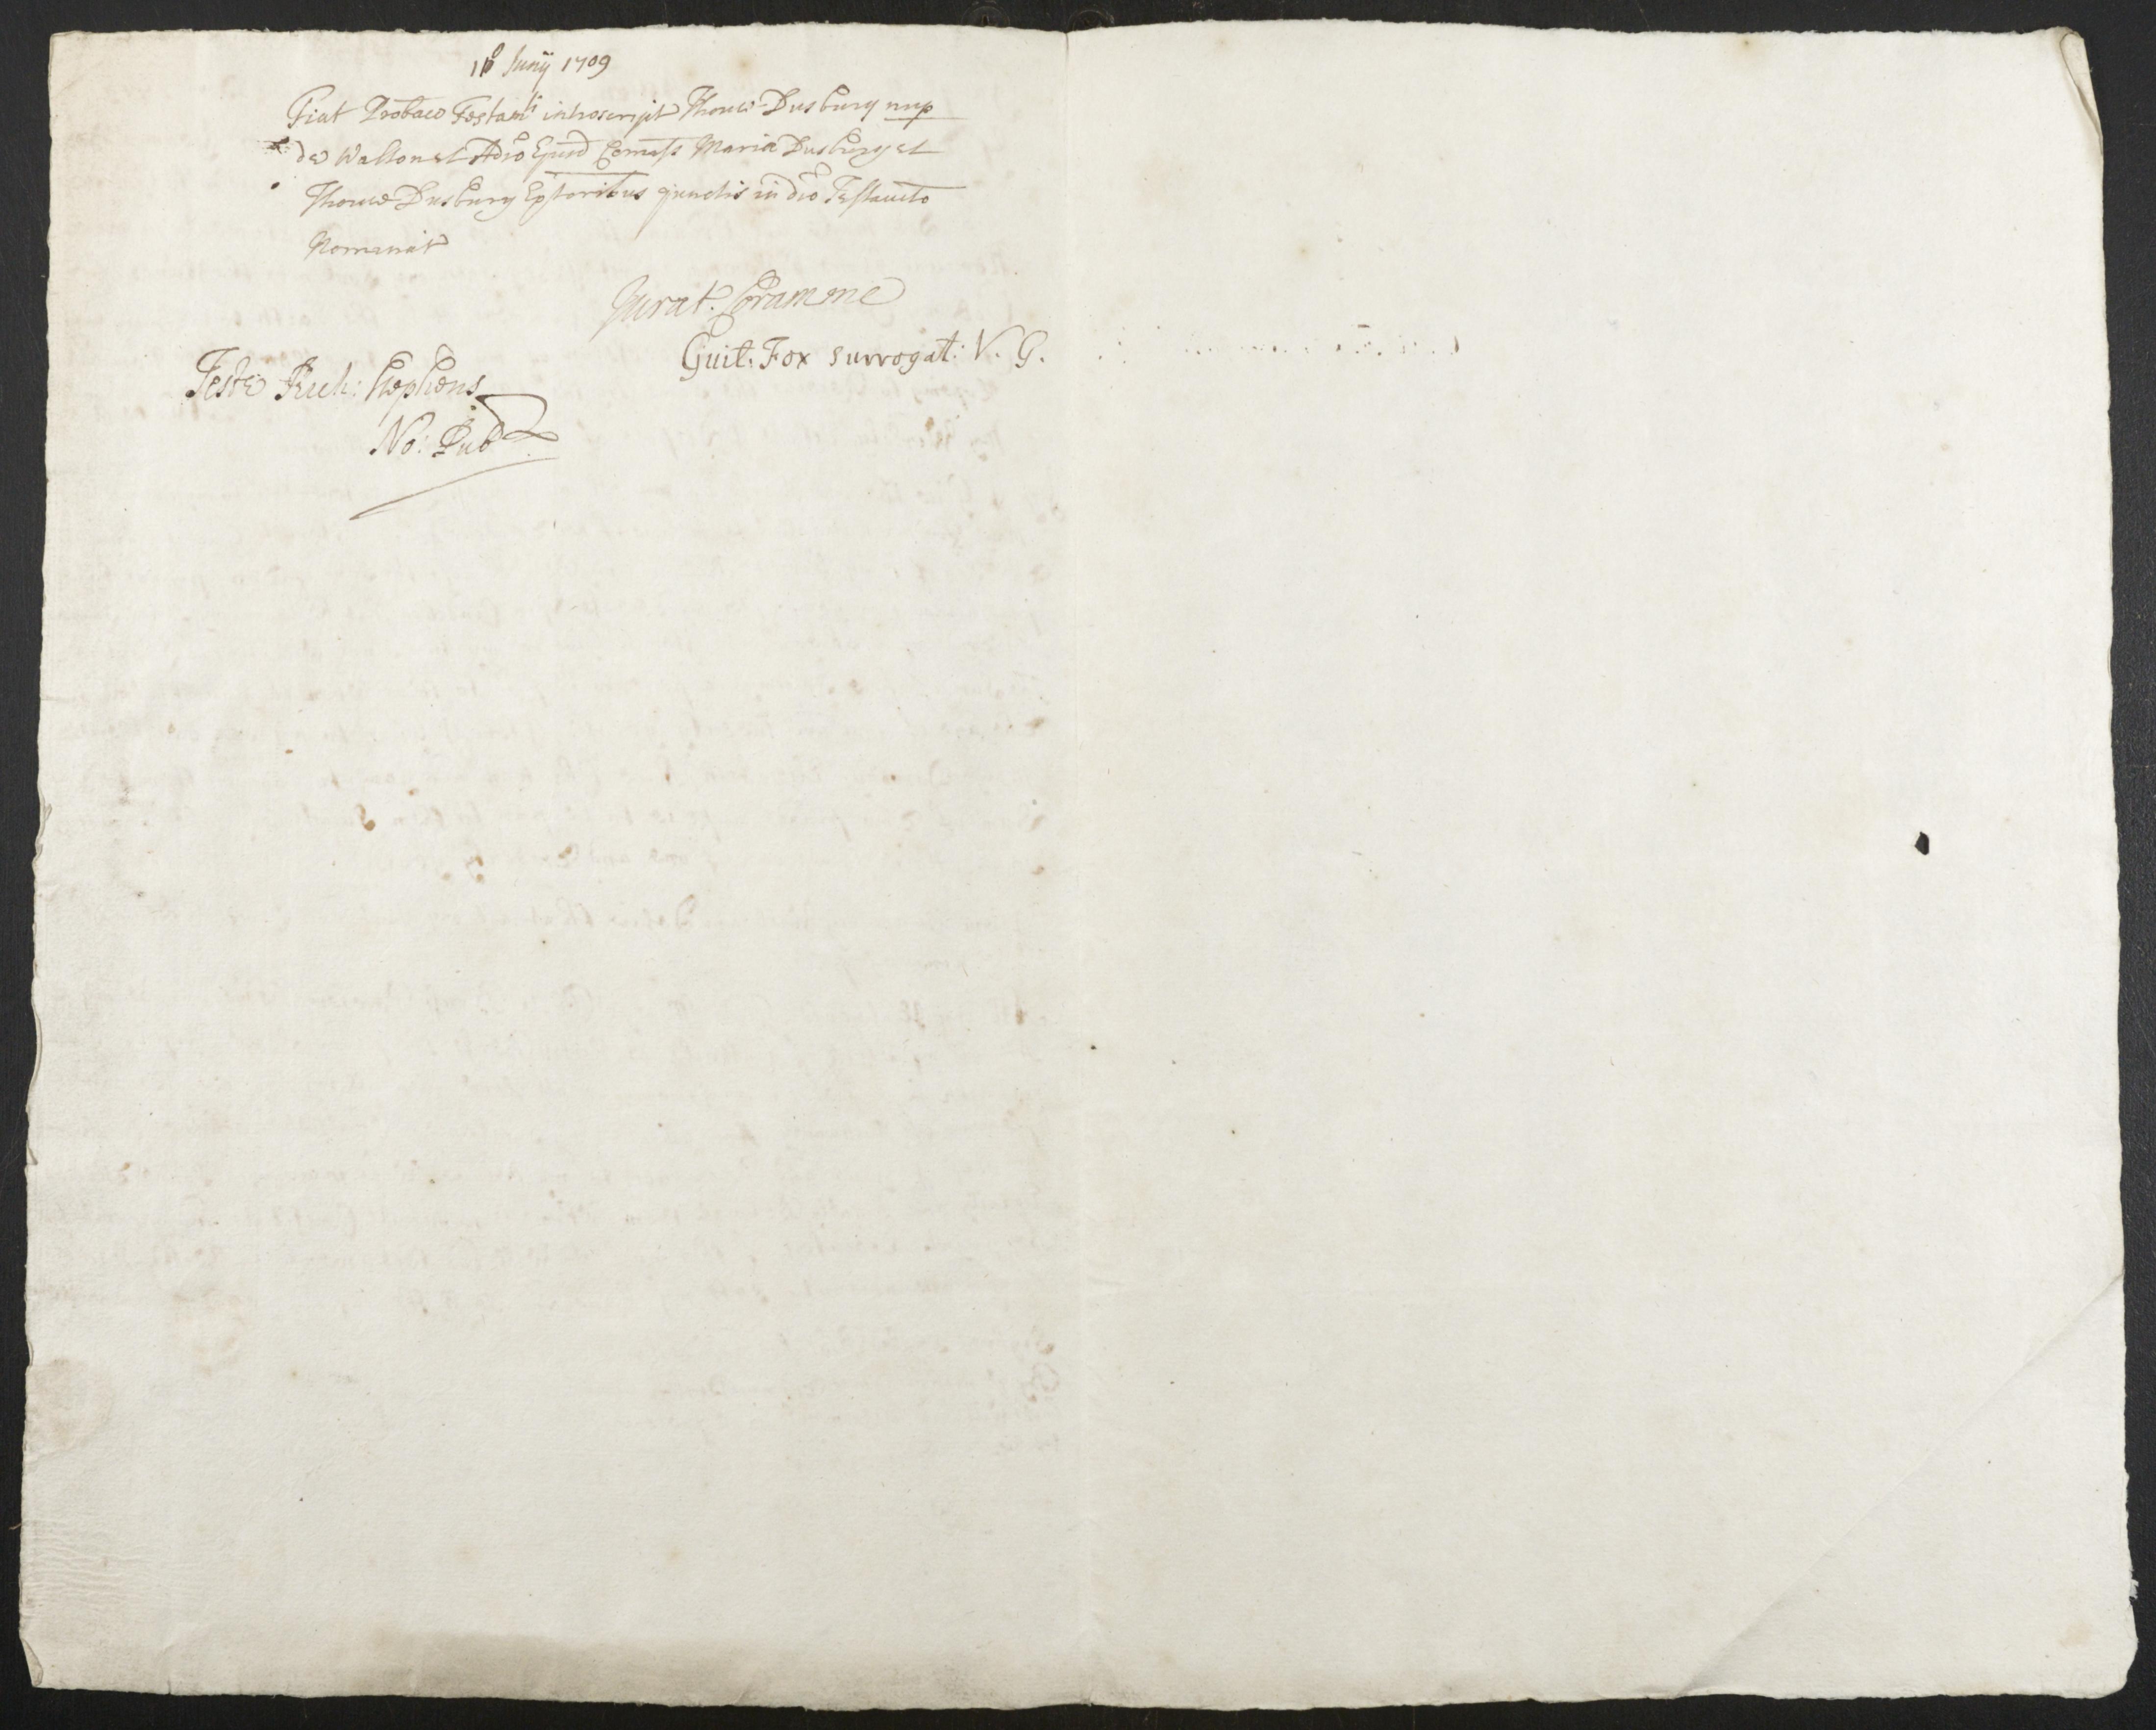 Junij 1709
Fiat Probaco Testamti introscript Thome Dusbury nup
de Walton et Adio Ejusd Comiss Maria Dusbury et
Thome Dusbury Extoribus conjunctis in dco Testamto
Nominat
Jurat. Coram me
Guil: Fox surrogat: V. G.
Teste Rich: Stephens
No: Pub